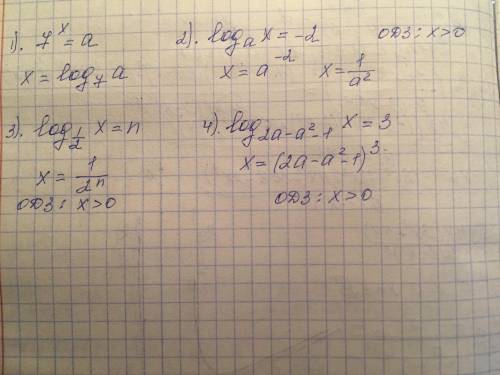 1). 7^x = a
x = log_7 a
2). log_a x = -2 ОДЗ: x>0
x = a^{-2} x = \frac{1}{a^2}
3). log_{\frac{1}{2}} x = n
x = \frac{1}{2^n}
ОДЗ: x>0
4). log_{2a-a^2-1} x = 3
x = (2a-a^2-1)^3.
ОДЗ: x>0